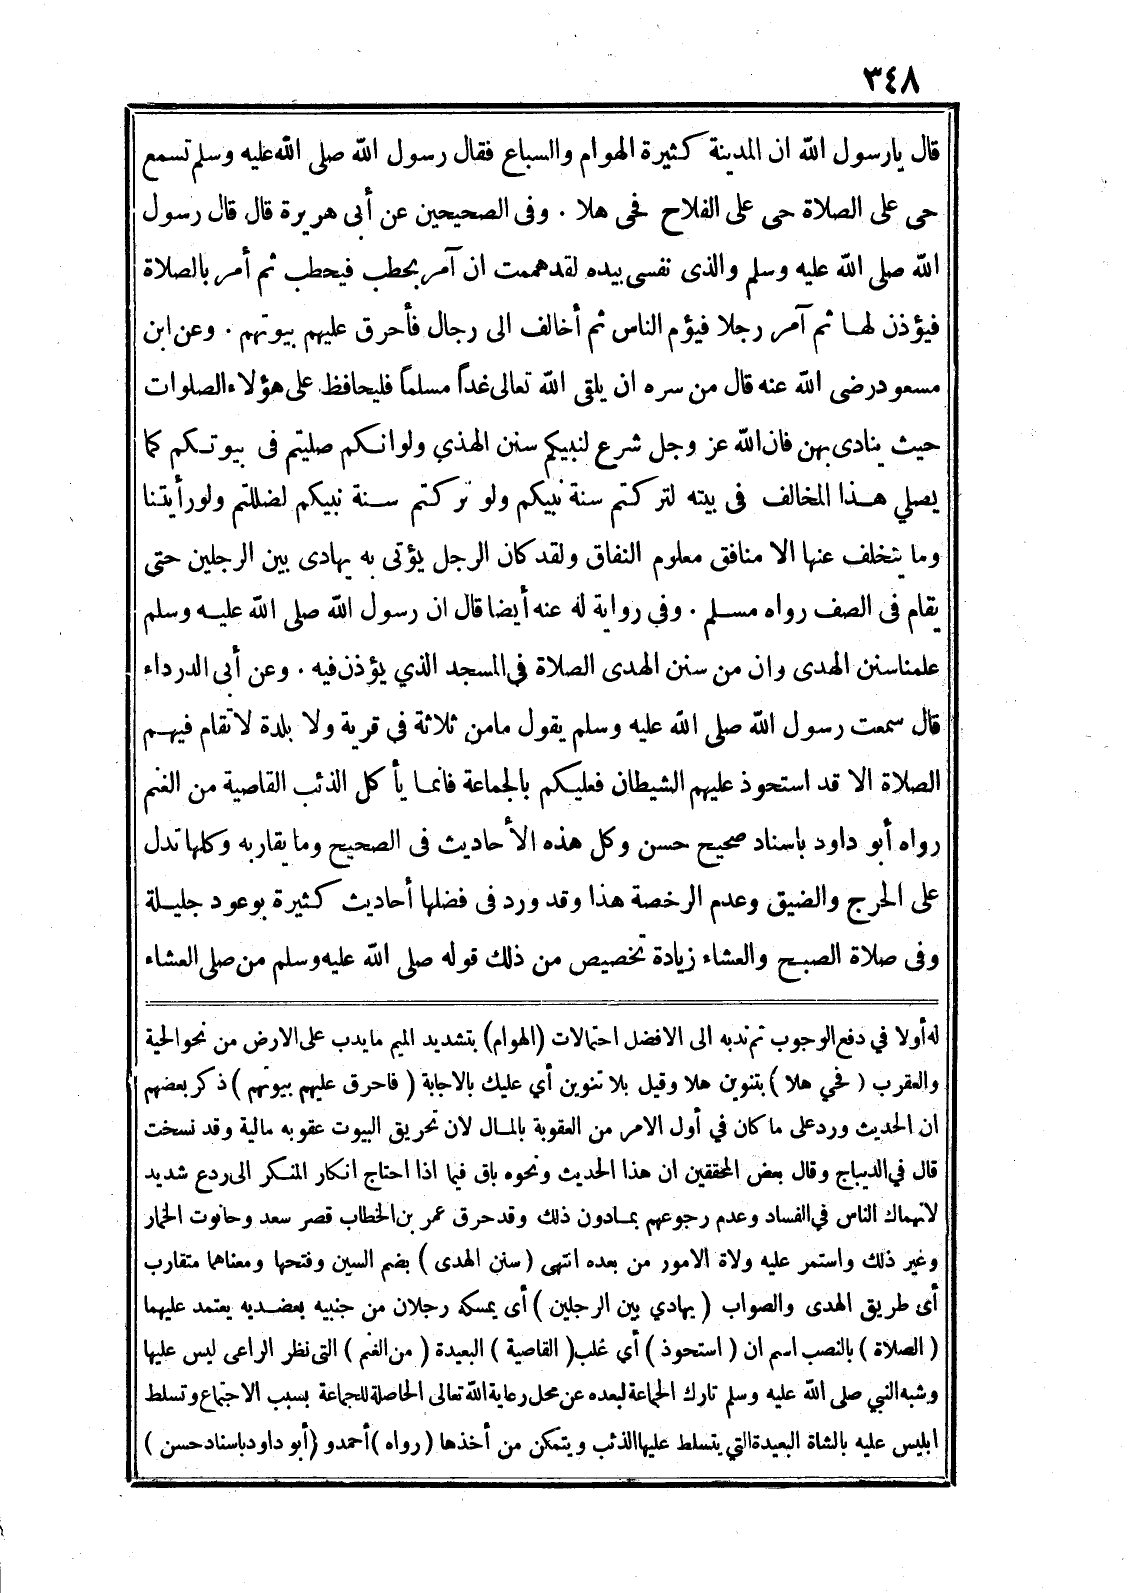 ٣٤٨
قال يارسول الله ان المدينة كثيرة الهوام والسباع فقال رسول الله صلى الله عليه وسلم تسمع
حى على الصلاة حى على الفلاح فحى هلا . وفى الصحيحين عن أبى هريرة قال قال رسول
الله صلى الله عليه وسلم والذى نفسى بيده لقدهممت ان آمر بحطب فيحطب ثم أمر بالصلاة
فيؤذن لهـا ثم آمر رجلا فيؤم الناس ثم أخالف الى رجال فأحرق عليهم بيوتهم . وعن ابن
مسعود رضى الله عنه قال من سره ان يلقى الله تعالى غداً مسلماً فليحافظ على هؤلاء الصلوات
حيث ينادى بهن فان الله عز وجل شرع لنبيكم سنن الهذي ولو انـكم صليتم فى بيوتـكم كما
يصلي هـذا المخالف فى بيته لتركتم سنة نبيكم ولو تركتم سـنة نبيكم لضللتم ولو رأيتنا
وما يتخلف عنها الا منافق معلوم النفاق ولقد كان الرجل يؤتى به يهادى بين الرجلين حتى
يقام فى الصف رواه مسـلم . وفي رواية له عنه أيضا قال ان رسول الله صلى الله عليـه وسلم
علمنا سنن الهدى وان من سنن الهدى الصلاة في المسجد الذي يؤذن فيه . وعن أبى الدرداء
قال سمعت رسول الله صلى الله عليه وسلم يقول مامن ثلاثة في قرية ولا بلدة لا تقام فيهـم
الصلاة الا قد استحوذ عليهم الشيطان فعليكم بالجماعة فانمـا يأكل الذئب القاصية من الغنم
رواه أبو داود باسناد صحيح حسن وكل هذه الأحاديث فى الصحيح وما يقاربه وكلها تدل
على الحرج والضيق وعدم الرخصة هذا وقد ورد فى فضلها أحاديث كثيرة بوعود جليـلة
وفى صلاة الصبـح والعشاء زيادة تخصيص من ذلك قوله صلى الله عليه وسلم من صلى العشاء
له أولا في دفع الوجوب ثم ندبه الى الافضل احتمالات (الهوام) بتشديد الميم مايدب على الارض من نحو الحية
والعقرب ( فحي هلا ) بتنوين هلا وقيل بلا تنوين أي عليك بالاجابة ( فاحرق عليهم بيوتهم ) ذكر بعضهم
ان الحديث ورد على ما كان في أول الامر من العقوبة بالمـال لان تحريق البيوت عقوبه مالية وقد نسخت
قال في الديباج وقال بعض المحققين ان هذا الحديث ونحوه باق فيما اذا احتاج انكار المنـكر الى ردع شديد
لانهماك الناس في الفساد وعدم رجوعهم بمـادون ذلك وقد حرق عمر بن الخطاب قصر سعد وحانوت الخمار
وغير ذلك واستمر عليه ولاة الامور من بعده انتهى ( سنن الهدى ) بضم السين وفتحها ومعناهما متقارب
أى طريق الهدى والصواب ( يهادي بين الرجلين ) أى يمسكه رجلان من جنبيه بعضـديه يعتمد عليهما
( الصلاة ) بالنصب اسم ان ( استحوذ ) أي غلب ( القاصية ) البعيدة ( من الغنم ) التى نظر الراعى ليس عليها
وشبه النبي صلى الله عليه وسلم تارك الجماعة لبعده عن محل رعاية الله تعالى الحاصلة للجماعة بسبب الاجتماع وتسلط
ابليس عليه بالشاة البعيدة التي يتسلط عليها الذئب ويتمكن من أخذها ( رواه ) أحمد و (أبو داود باسناد حسن )